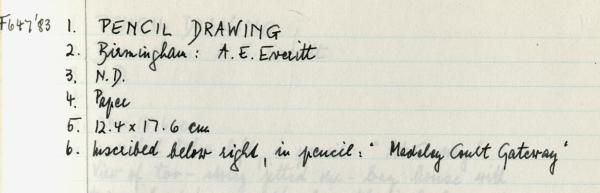 F647'83 1. PENCIL DRAWING
2. Birmingham: A. E. Everitt
3. N.D.
4. Paper
5. 12.4 x 17.6 cm
6. Inscribed below right, in pencil: " Madeley Court Gateway"